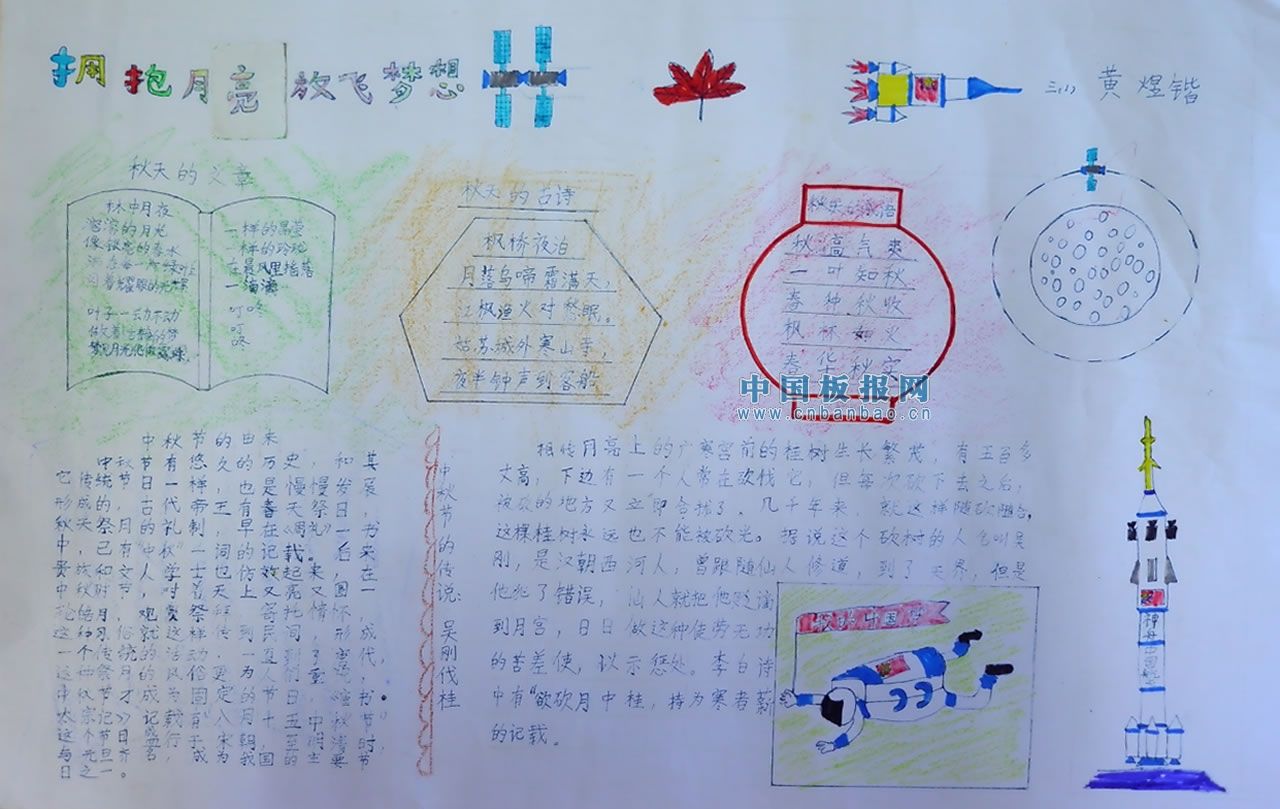 拥抱月亮 放飞梦想
三(1) 黄煜锴
秋天的文章
林中月夜
溶溶的月光
像银亮的春水
叶子一动不动
一样的晶莹
一样的玲珑
在晨风里摇落
一滴滴
叮咚
叮
咚
秋天的古诗
枫桥夜泊
月落乌啼霜满天,
江枫渔火对愁眠。
姑苏城外寒山寺,
夜半钟声到客船
秋天的成语
秋高气爽
一叶知秋
春种秋收
枫林如火
春华秋实
中国板报网
www.cnbanbao.cn
中秋节的由来
中秋节有悠久的历史,和其
它传统节日一样,也是慢慢发展
形成的,古代帝王有春天祭日,
秋天祭月的礼制,早在《周礼》一书
中,已有“中秋”一词的记载。后来
贵族和文人学士也仿效起来,在
中秋时节,对着天上又亮又圆一
轮皓月,观赏祭拜,寄托情怀,
这种风俗就这样传到民间,形成
一个传统的活动,一直到了唐代,
这种祭月的风俗更为人们重视,
中秋节才成为固定的节日,《唐书·
太宗记》记载有“八月十五中秋节”
这个节日盛行于宋朝,至明清时,
与元旦齐名,成为我国的主要节
日之一。
中秋节的传说:吴刚伐桂
相传月亮上的广寒宫前的桂树生长繁茂,有五百多
丈高,下边有一个人常在砍伐它,但每次砍下去之后,
被砍的地方又立即合拢了。几千年来,就这样随砍随合,
这棵桂树永远也不能被砍光。据说这个砍树的人名叫吴
刚,是汉朝西河人,曾跟随仙人修道,到了天界,但是
他犯了错误,仙人就把他贬谪
到月宫,日日做这种徒劳无功
的苦差使,以示惩处。李白诗
中有“欲砍月中桂,持为寒者薪
的记载。
神舟
中国航